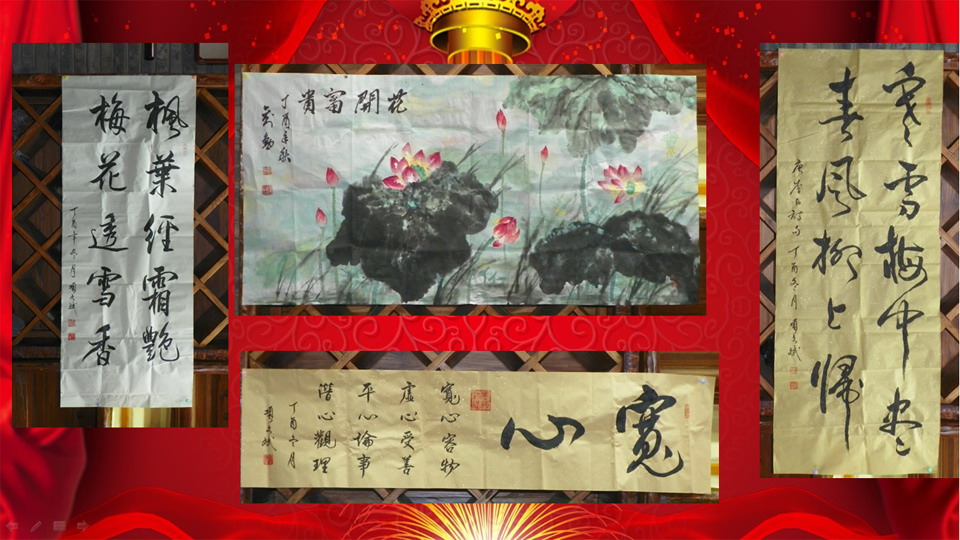 楓葉經霜艷
梅花透雪香
丁酉年冬月
花開富貴
丁酉年秋
寬心
寬心容物
虛心受善
平心論事
潛心觀理
丁酉冬月
寒雪梅中盡
春風柳上歸
丁酉冬月